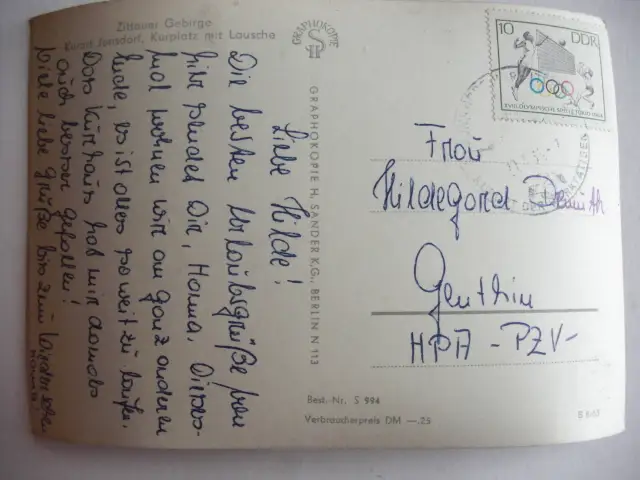 Zittauer Gebirge
Kurort Jonsdorf, Kurplatz mit Lausche
Liebe Hilde!
Die besten Urlaubsgrüße von
hier sendet Dir, Hanna. Dieses-
mal wohnen wir am ganz anderen
Ende, es ist alles so weit zu laufen.
Das Kurhaus hat mir damals
auch besser gefallen!
Viele liebe Grüße bis zum Wiedersehen
Hanna
GRAPHOKOPIE
GRAPHOKOPIE H. SANDER K.G., BERLIN N 113
10 DDR
XVIII. OLYMPISCHE SPIELE TOKIO 1964
Frau
Hildegard
Genthin
HPA - PZV -
Best. Nr. S 994
Verbraucherpreis DM —.25